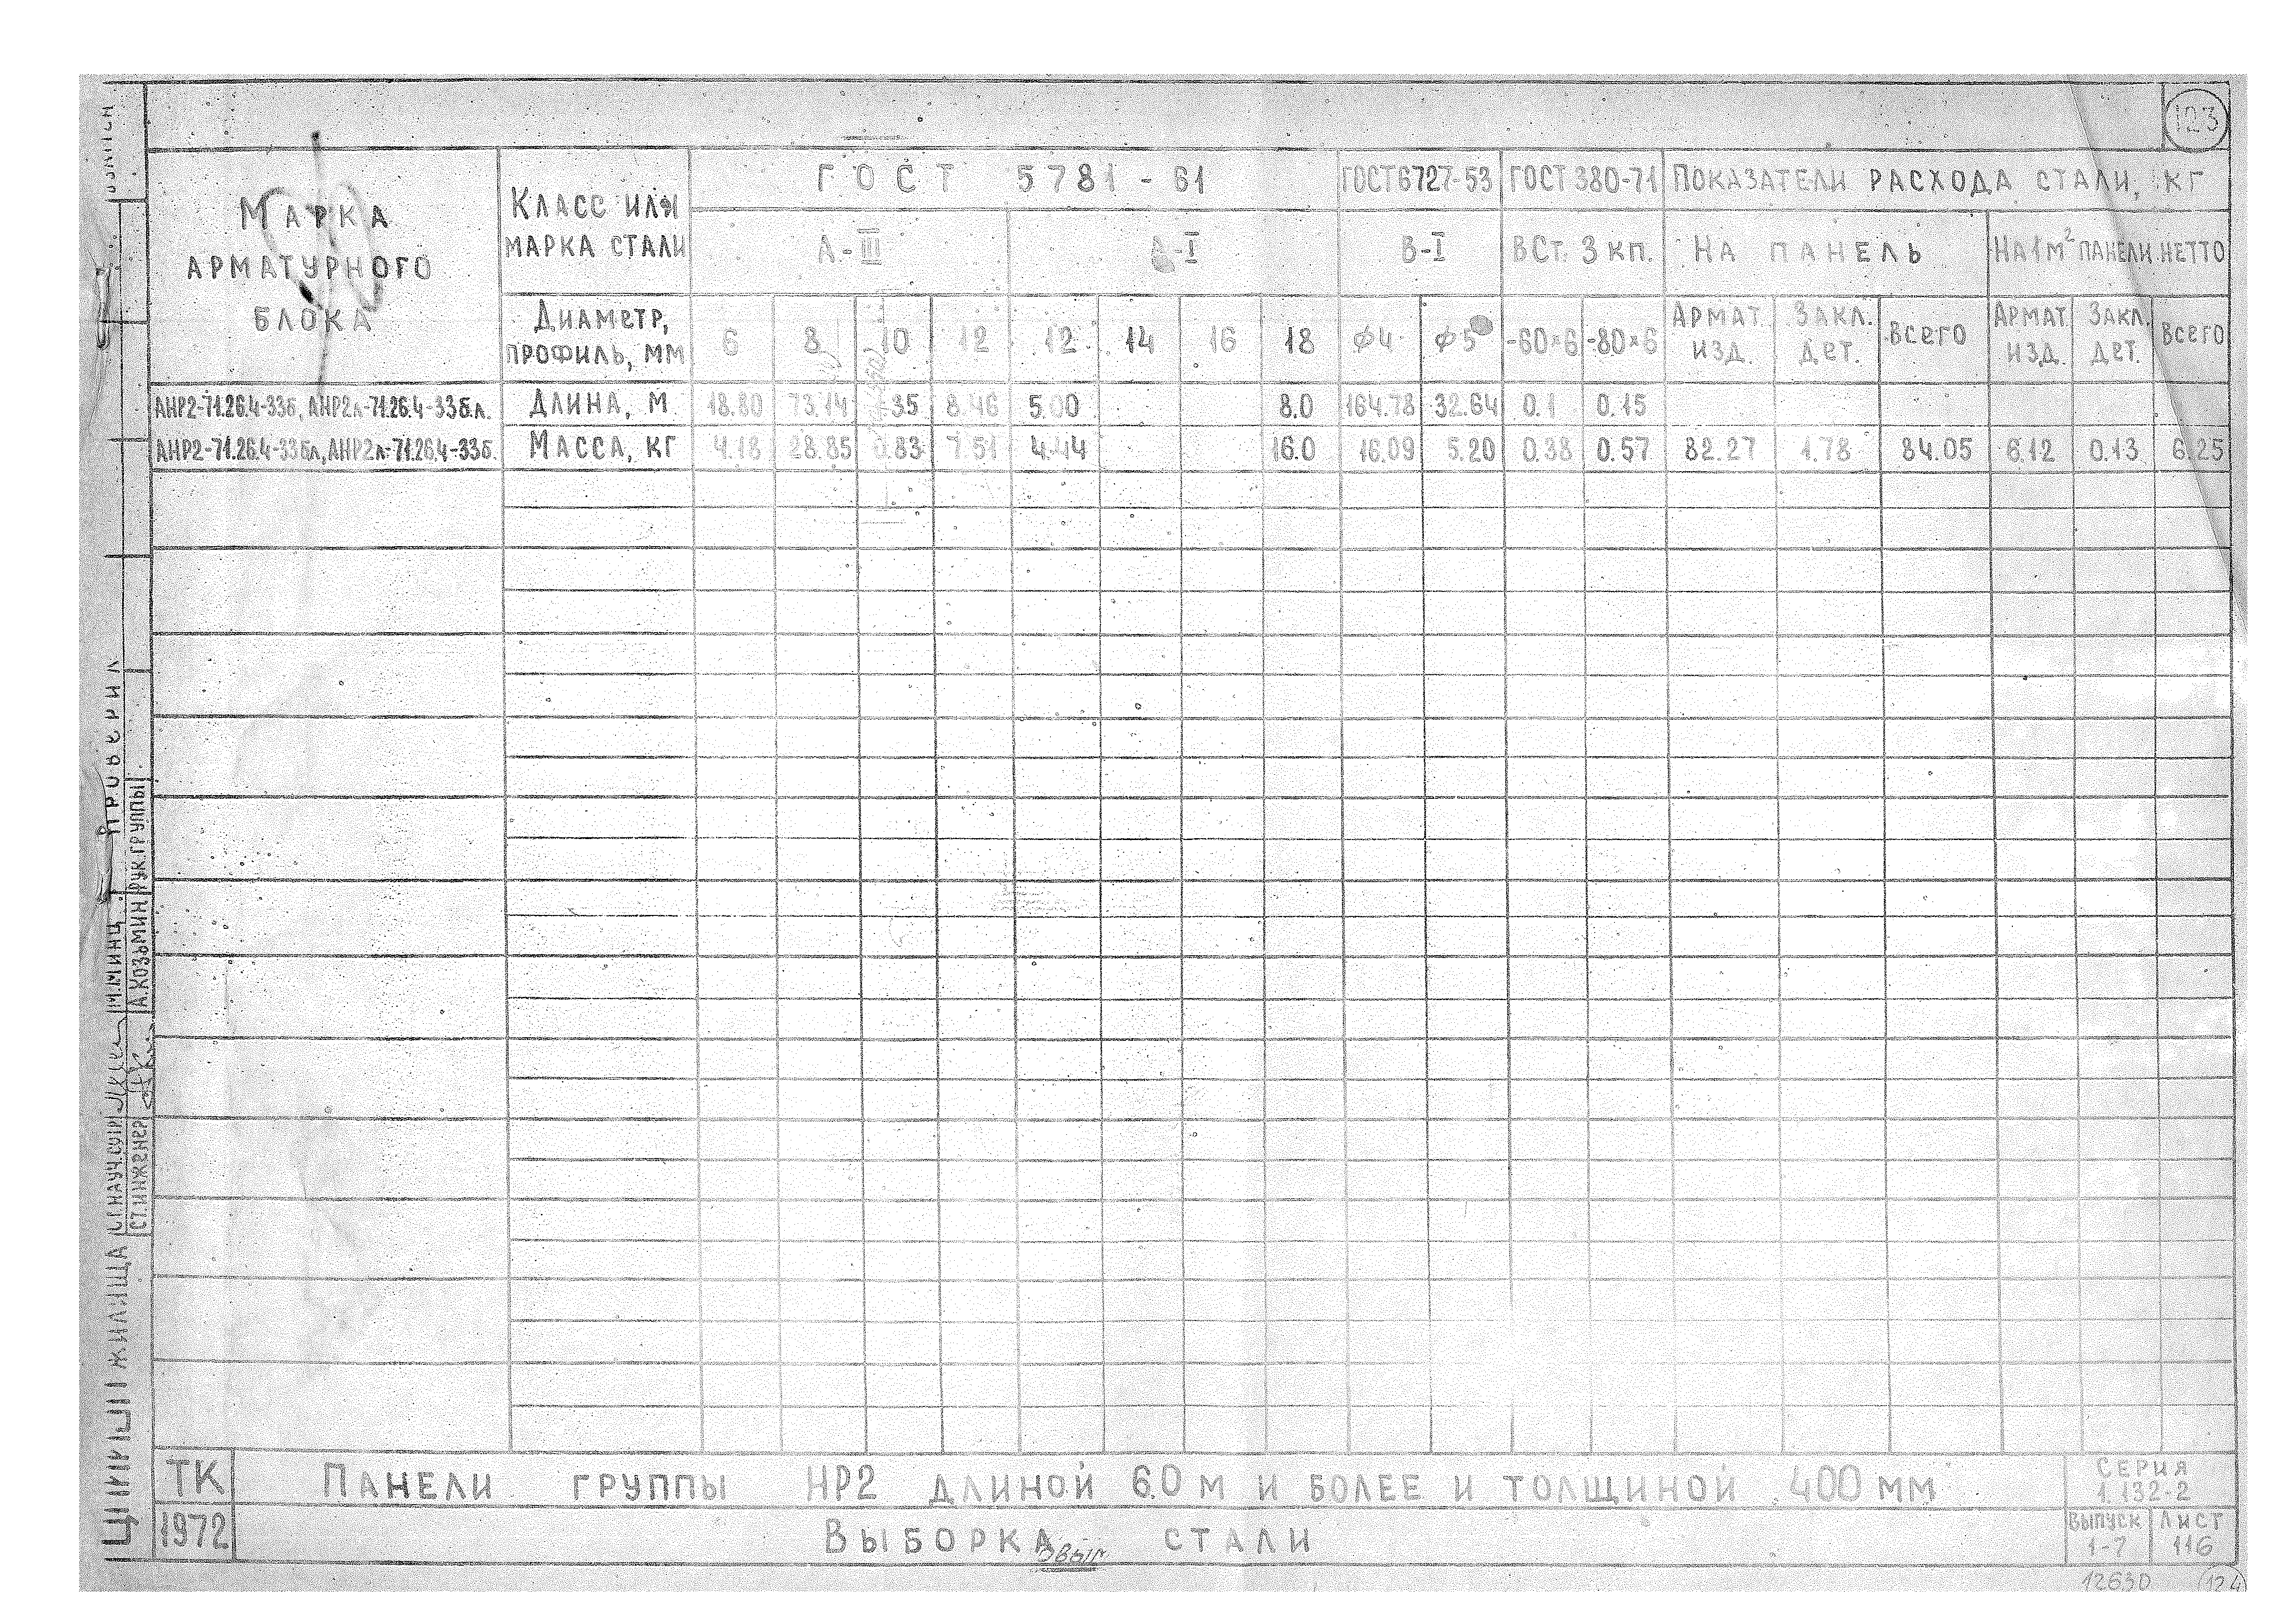 123
МАРКА АРМАТУРНОГО БЛОКА
КЛАСС ИЛИ МАРКА СТАЛИ
ГОСТ 5781-61
ГОСТ 6727-53
ГОСТ 380-71
ПОКАЗАТЕЛИ РАСХОДА СТАЛИ, КГ
А-III
А-I
В-I
ВСт. 3 кп.
НА ПАНЕЛЬ
НА 1 м² ПАНЕЛИ НЕТТО
ДИАМЕТР, ПРОФИЛЬ, ММ
6 8 10 12 12 14 16 18 ф4 ф5 -60×6 -80×6
АРМАТ. ИЗД. ЗАКЛ. ДЕТ. ВСЕГО АРМАТ. ИЗД. ЗАКЛ. ДЕТ. ВСЕГО
АНР2-71.26.4-33б, АНР2л-71.26.4-33б.л. ДЛИНА, М 18.80 73.14 .35 8.46 5.00 8.0 164.78 32.64 0.1 0.15
АНР2-71.26.4-33бл, АНР2л-71.26.4-33б. МАССА, КГ 4.18 28.85 0.83 7.51 4.44 16.0 16.09 5.20 0.38 0.57 82.27 1.78 84.05 6.12 0.13 6.25
ПРОВЕРИЛ
М.МИНЦ
А.КОЗЬМИН РУК.ГРУППЫ
СТ.НАУЧ.СОТР.
СТ.ИНЖЕНЕР
ЖИЛИЩА
ТК
1972
ПАНЕЛИ ГРУППЫ НР2 ДЛИНОЙ 6.0 М И БОЛЕЕ И ТОЛЩИНОЙ 400 ММ
ВЫБОРКА СТАЛИ
СЕРИЯ
1.132-2
ВЫПУСК
1-7
ЛИСТ
116
12630
124